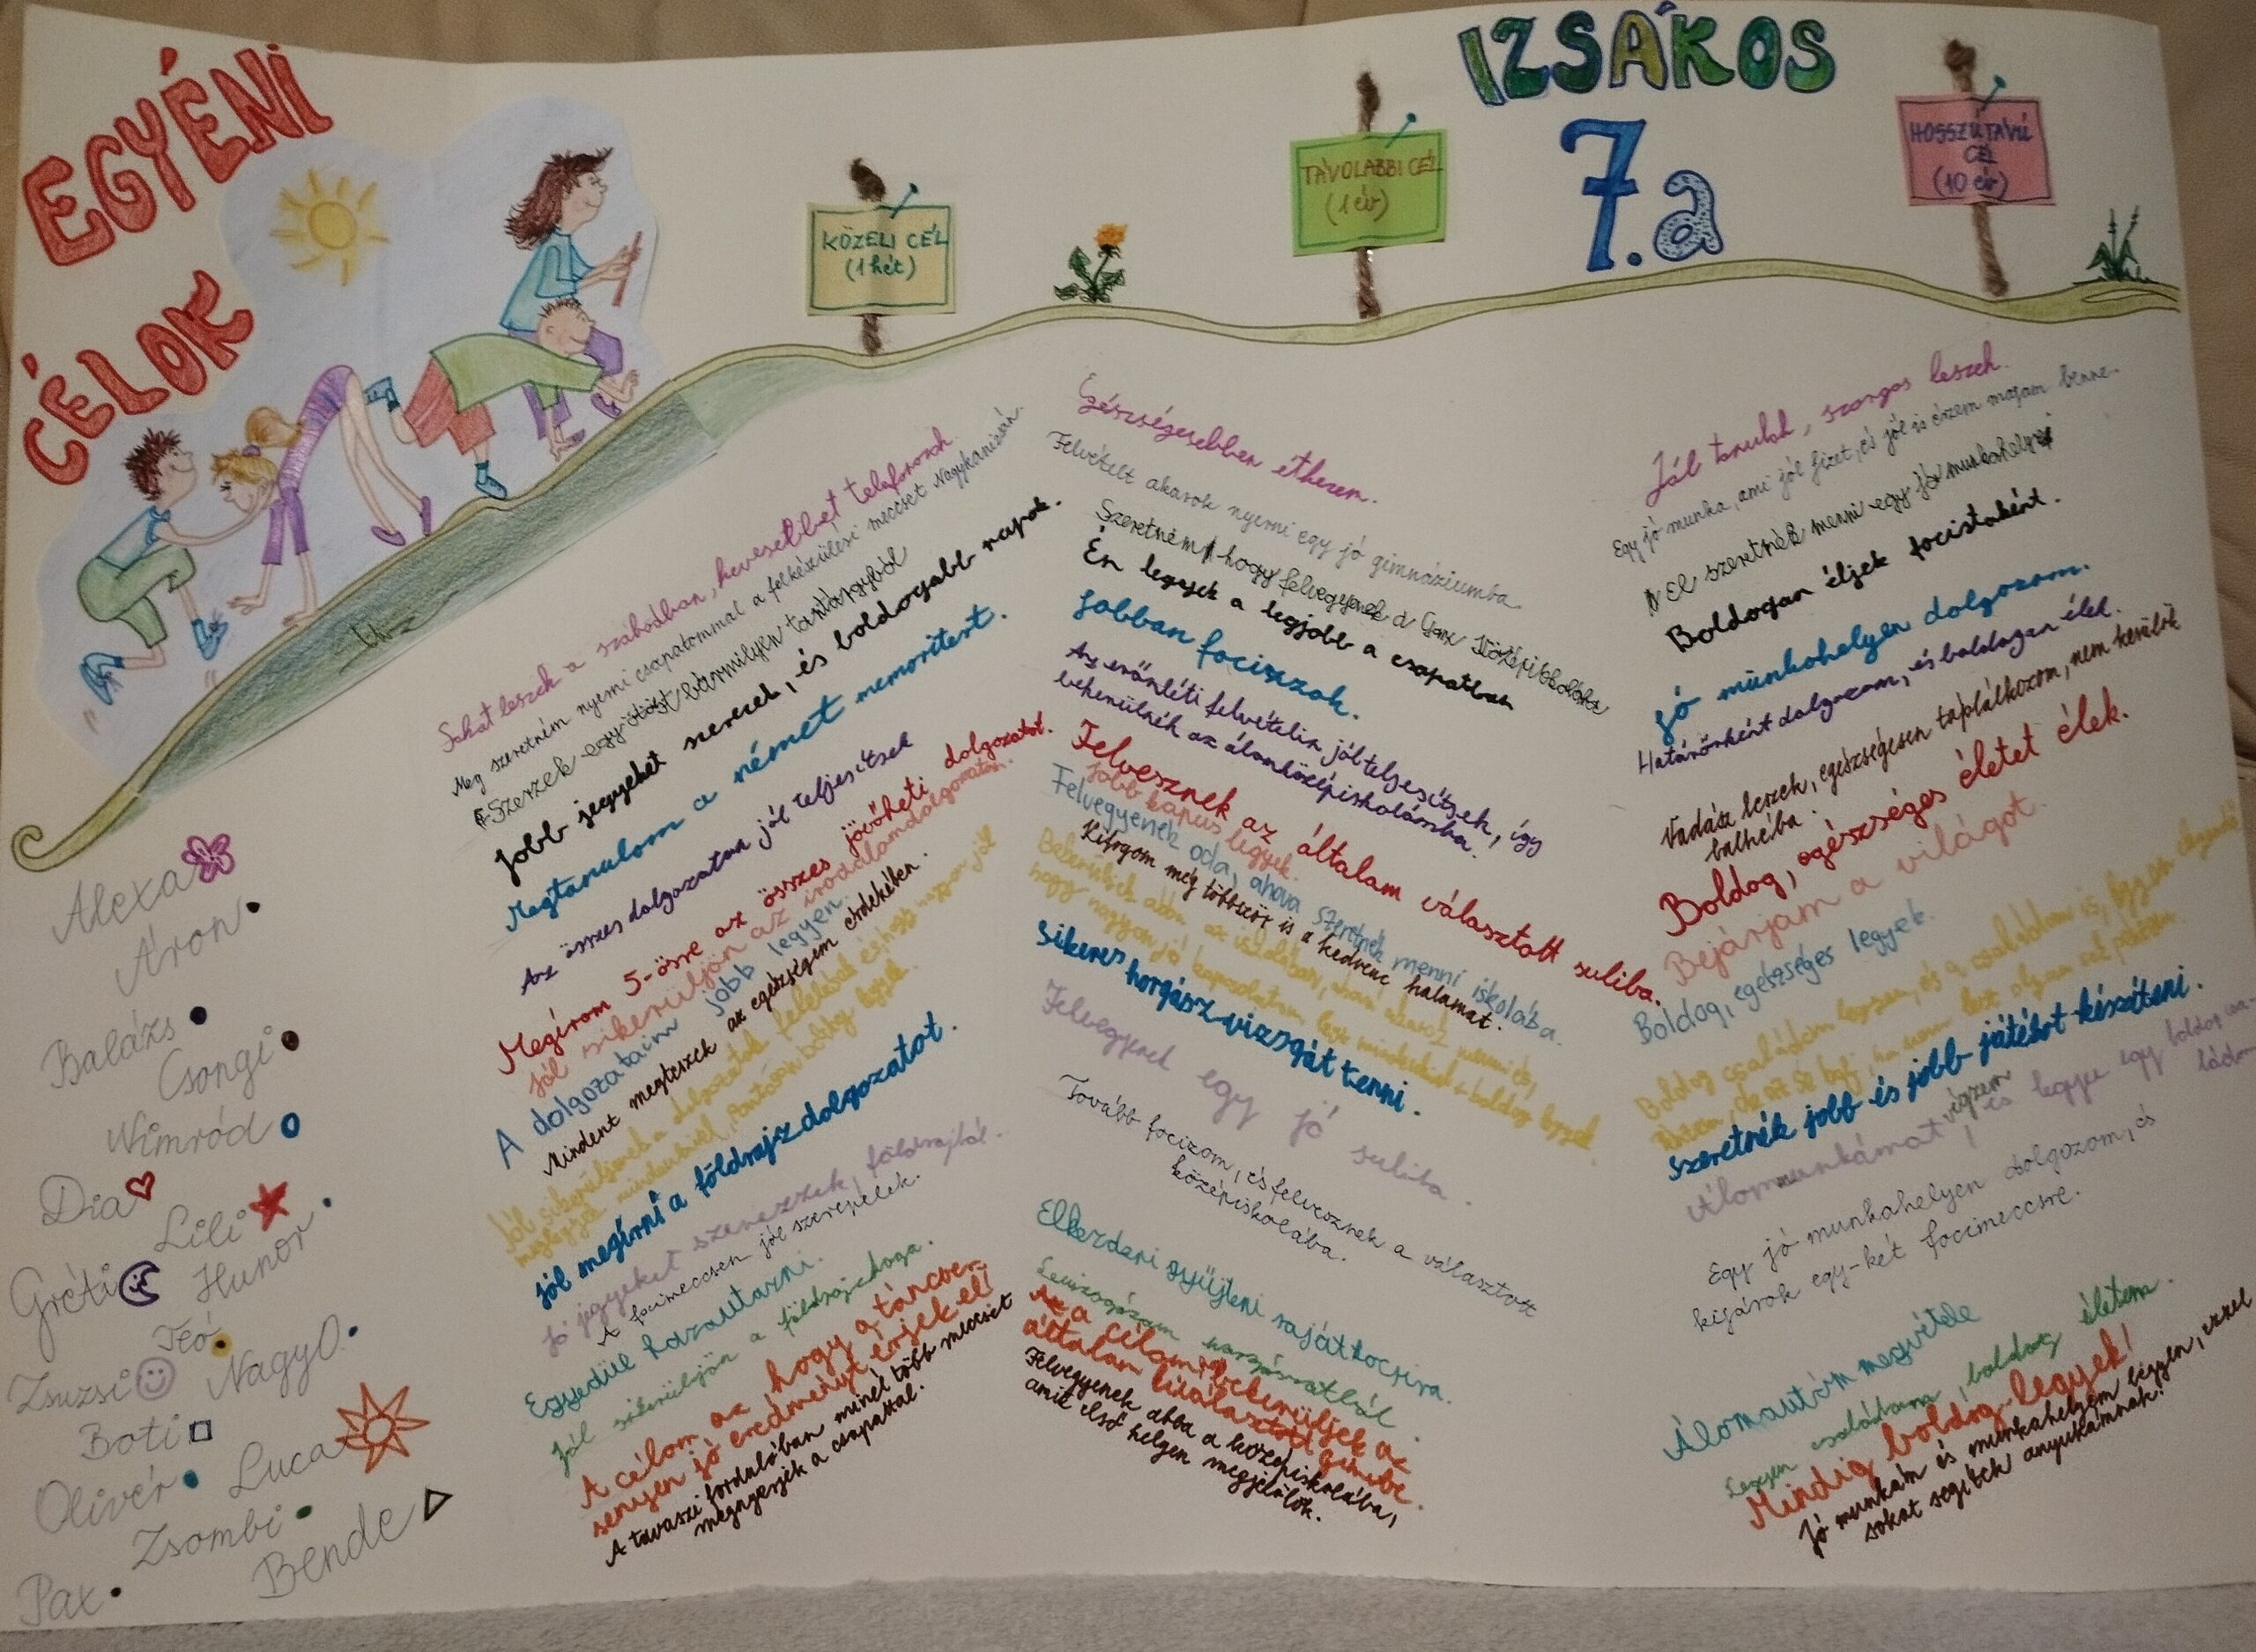 EGYÉNI
CÉLOK
IZSÁKOS
7.a
KÖZELI CÉL
(1 hét)
TÁVOLABBI CÉL
(1 év)
HOSSZÚTAVÚ
CÉL
(10 év)
Alexa
Áron
Balázs
Csongi
Nimród
Dia
Lili
Gréti
Hunor
Teó
Zsuzsi
Nagy O.
Boti
Luca
Olivér
Zsombi
Bende
Pax
Sokat leszek a szabadban, kevesebbet telefonozok
Meg szeretném nyerni csapatommal a felkészülési meccset Nagykanizsán.
Szerzek egy ötöst bármilyen tantárgyból
Jobb jegyeket szerezek, és boldogabb napok.
Megtanulom a német memoritert.
Az összes dolgozaton jól teljesítsek
Megírom 5-ösre az összes jövőheti dolgozatot.
Jól sikerüljön az irodalomdolgozatom.
A dolgozataim jobb legyen.
Mindent megteszek az egészségem érdekében.
Jól sikerüljenek a dolgozatok, felelések és hogy nagyon jól
meglegyek mindenkivel,
Jól megírni a földrajz dolgozatot.
Jó jegyeket szerezzek, földrajzból.
A focimeccsen jól szereplek.
Egyedül hazautazni.
Jól sikerüljön a földrajzdoga.
A célom az, hogy a táncver-
senyen jó eredményt érjek el!
A tavaszi fordulóban minél több meccset
megnyerjék a csapattal.
Egészségesebben étkezem.
Felvételt akarok nyerni egy jó gimnáziumba.
Szeretném hogy felvegyenek a középiskolába
Én legyek a legjobb a csapatban
Jobban focizzak.
Az erőnléti felvételin jól teljesítsek, így
bekerülnék az álomközépiskolámba.
Felvesznek az általam választott suliba.
Jobb kapus legyek.
Felvegyenek oda, ahova szeretnék menni iskolába.
Kifogom még többször is a kedvenc halamat.
Bekerüljek abba az iskolában, ahová akarok menni és,
hogy nagyon jó kapcsolatom legyen mindenkivel + boldog legyek
Sikeres horgász vizsgát tenni.
Felvegyenek egy jó suliba.
Tovább focizom, és felvesznek a választott
középiskolába.
Elkezdeni gyűjteni saját kocsira.
Levizsgázom
Az a célom, bekerüljek az
általam kiválasztott gimibe.
Felvegyenek abba a középiskolába,
amit első helyen megjelölök.
Jól tanulok, szorgos leszek.
Egy jó munka, ami jól fizet, és jól is érzem magam benne.
El szeretnék menni egy jó munkahelyre
Boldogan éljek focistaként.
Jó munkahelyen dolgozom.
Határőrként dolgozom, és boldogan élek.
Vadász leszek, egészségesen táplálkozom, nem kerülök
balhéba.
Boldog, egészséges életet élek.
Bejárjam a világot.
Boldog, egészséges legyek.
Boldog családom legyen, és a családom is, legyen elegendő
Szeretnék jobb és jobb játékot készíteni.
Álommunkámat végzem és legyen egy boldog csa-
ládom
Egy jó munkahelyen dolgozom, és
kijárok egy-két focimeccsre.
Álomautóm megvétele
Legyen családom, boldog életem.
Mindig boldog legyek!
Jó munkám és munkahelyem legyen, ezzel
sokat segítek anyukámnak.